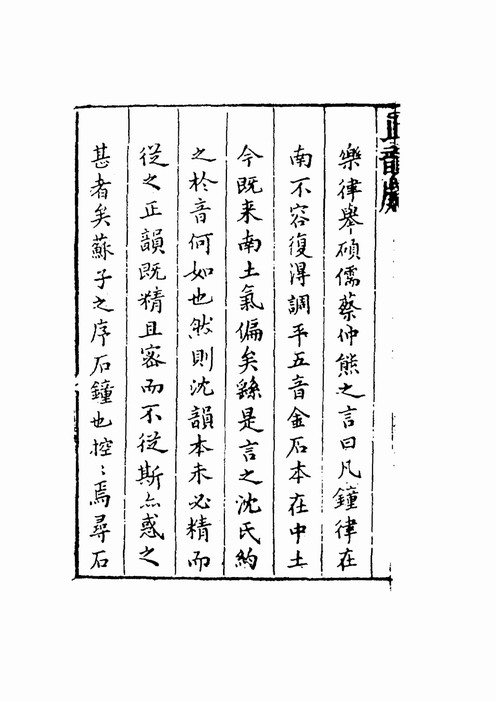 樂律舉碩儒蔡仲熊之言曰凡鐘律在
南不容復得調平五音金石本在中土
今既来南土氣偏矣繇是言之沈氏約
之於音何如也然則沈韻本未必精而
從之正韻既精且密而不從斯亦惑之
甚者矣蘇子之序石鐘也控〻焉尋石